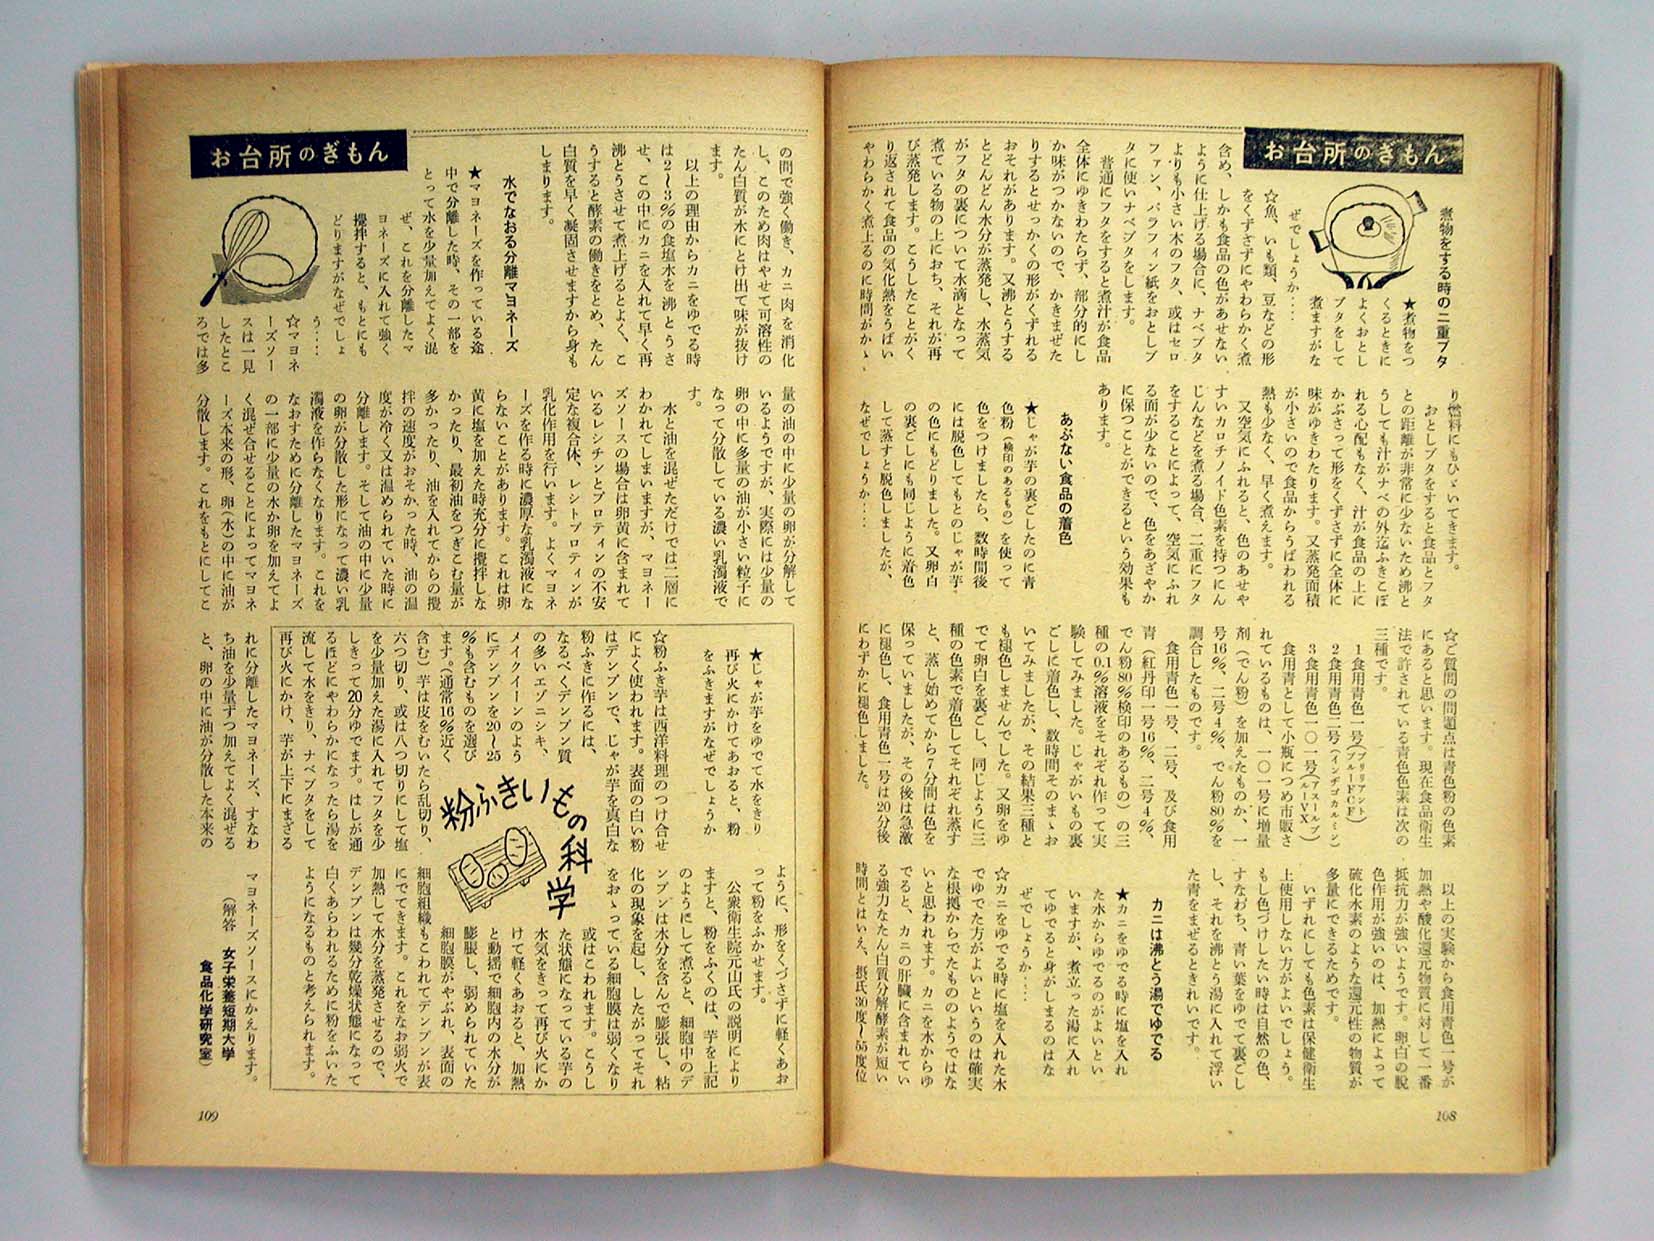 お台所のぎもん
煮物をする時の二重ブタ
★煮物をつ
くるときに
よくおとし
ブタをして
煮ますがな
ぜでしょうか…
☆魚、いも類、豆などの形
をくずさずにやわらかく煮
含め、しかも食品の色があせない
ように仕上げる場合に、ナベブタ
よりも小さい木のフタ、或はセロ
ファン、パラフィン紙をおとしブ
タに使いナベブタをします。
普通にフタをすると煮汁が食品
全体にゆきわたらず、部分的にし
か味がつかないので、かきまぜた
りするとせっかくの形がくずれる
おそれがあります。又沸とうする
とどんどん水分が蒸発し、水蒸気
がフタの裏について水滴となって
煮ている物の上におち、それが再
び蒸発します。こうしたことがく
り返されて食品の気化熱をうばい
やわらかく煮上るのに時間がかゝ
り燃料にもひゞいてきます。
おとしブタをすると食品とフタ
との距離が非常に少ないため沸と
うしても汁がナベの外迄ふきこぼ
れる心配もなく、汁が食品の上に
かぶさって形をくずさずに全体に
味がゆきわたります。又蒸発面積
が小さいので食品からうばわれる
熱も少なく、早く煮えます。
又空気にふれると、色のあせや
すいカロチノイド色素を持つにん
じんなどを煮る場合、二重にフタ
をすることによって、空気にふれ
る面が少ないので、色をあざやか
に保つことができるという効果も
あります。
あぶない食品の着色
★じゃが芋の裏ごしたのに青
色粉（検印のあるもの）を使って
色をつけましたら、数時間後
には脱色してもとのじゃが芋
の色にもどりました。又卵白
の裏ごしにも同じように着色
して蒸すと脱色しましたが、
なぜでしょうか…
☆ご質問の問題点は青色粉の色素
にあると思います。現在食品衛生
法で許されている青色色素は次の
三種です。
1食用青色一号（ブリリアントブルーFCF）
2食用青色二号（インヂゴカルミン）
3食用青色一〇一号（アズールブルーVX）
食用青として小瓶につめ市販さ
れているものは、一〇一号に増量
剤（でん粉）を加えたものか、一
号16％、二号4％、でん粉80％を
調合したものです。
食用青色一号、二号、及び食用
青（紅丹印一号16％、二号4％、
でん粉80％検印のあるもの）の三
種の0.1％溶液をそれぞれ作って実
験してみました。じゃがいもの裏
ごしに着色し、数時間そのまゝお
いてみましたが、その結果三種と
も褪色しませんでした。又卵をゆ
でて卵白を裏ごし、同じように三
種の色素で着色してそれぞれ蒸す
と、蒸し始めてから7分間は色を
保っていましたが、その後は急激
に褪色し、食用青色一号は20分後
にわずかに褪色しました。
以上の実験から食用青色一号が
加熱や酸化還元物質に対して一番
抵抗力が強いようです。卵白の脱
色作用が強いのは、加熱によって
硫化水素のような還元性の物質が
多量にできるためです。
いずれにしても色素は保健衛生
上使用しない方がよいでしょう。
もし色づけしたい時は自然の色、
すなわち、青い葉をゆでて裏ごし
し、それを沸とう湯に入れて浮い
た青をまぜるときれいです。
カニは沸とう湯でゆでる
★カニをゆでる時に塩を入れ
た水からゆでるのがよいとい
いますが、煮立った湯に入れ
てゆでると身がしまるのはな
ぜでしょうか…
☆カニをゆでる時に塩を入れた水
でゆでた方がよいというのは確実
な根拠からでたもののようではな
いと思われます。カニを水からゆ
でると、カニの肝臓に含まれてい
る強力なたん白質分解酵素が短い
時間とはいえ、摂氏30度〜55度位
108
の間で強く働き、カニ肉を消化
し、このため肉はやせて可溶性の
たん白質が水にとけ出て味が抜け
ます。
以上の理由からカニをゆでる時
は2〜3％の食塩水を沸とうさ
せ、この中にカニを入れて早く再
沸とうさせて煮上げるとよく、こ
うすると酵素の働きをとめ、たん
白質を早く凝固させますから身も
しまります。
水でなおる分離マヨネーズ
★マヨネーズを作っている途
中で分離した時、その一部を
とって水を少量加えてよく混
ぜ、これを分離したマ
ヨネーズに入れて強く
攪拌すると、もとにも
どりますがなぜでしょ
う…
お台所のぎもん
☆マヨネ
ーズソー
スは一見
したとこ
ろでは多
量の油の中に少量の卵が分解して
いるようですが、実際には少量の
卵の中に多量の油が小さい粒子に
なって分散している濃い乳濁液で
す。
水と油を混ぜただけでは二層に
わかれてしまいますが、マヨネー
ズソースの場合は卵黄に含まれて
いるレシチンとプロティンの不安
定な複合体、レシトプロティンが
乳化作用を行います。よくマヨネ
ーズを作る時に濃厚な乳濁液にな
らないことがあります。これは卵
黄に塩を加えた時充分に攪拌しな
かったり、最初油をつぎこむ量が
多かったり、油を入れてからの攪
拌の速度がおそかった時、油の温
度が冷く又は温められていた時に
分離します。そして油の中に少量
の卵が分散した形になって濃い乳
濁液を作らなくなります。これを
なおすために分離したマヨネーズ
の一部に少量の水か卵を加えてよ
く混ぜ合せることによってマヨネ
ーズ本来の形、卵（水）の中に油が
分散します。これをもとにしてこ
れに分離したマヨネーズ、すなわ
ち油を少量ずつ加えてよく混ぜる
と、卵の中に油が分散した本来の
マヨネーズソースにかえります。
（解答　女子栄養短期大学
食品化学研究室）
粉ふきいもの科学
★じゃが芋をゆでて水をきり
再び火にかけてあおると、粉
をふきますがなぜでしょうか
☆粉ふき芋は西洋料理のつけ合せ
によく使われます。表面の白い粉
はデンプンで、じゃが芋を真白な
粉ふきに作るには、
なるべくデンプン質
の多いエゾニシキ、
メイクイーンのよう
にデンプンを20〜25
％も含むものを選び
ます。（通常16％近く
含む）芋は皮をむいたら乱切り、
六つ切り、或は八つ切りにして塩
を少量加えた湯に入れてフタを少
しきって20分ゆでます。はしが通
るほどにやわらかになったら湯を
流して水をきり、ナベブタをして
再び火にかけ、芋が上下にまざる
ように、形をくづさずに軽くあお
って粉をふかせます。
公衆衛生院元山氏の説明により
ますと、粉をふくのは、芋を上記
のようにして煮ると、細胞中のデ
ンプンは水分を含んで膨張し、粘
化の現象を起し、したがってそれ
をおゝっている細胞膜は弱くなり
或はこわれます。こうし
た状態になっている芋の
水気をきって再び火にか
けて軽くあおると、加熱
と動揺で細胞内の水分が
膨脹し、弱められていた
細胞膜がやぶれ、表面の
細胞組織もこわれてデンプンが表
にでてきます。これをなお弱火で
加熱して水分を蒸発させるので、
デンプンは幾分乾燥状態になって
白くあらわれるために粉をふいた
ようになるものと考えられます。
109